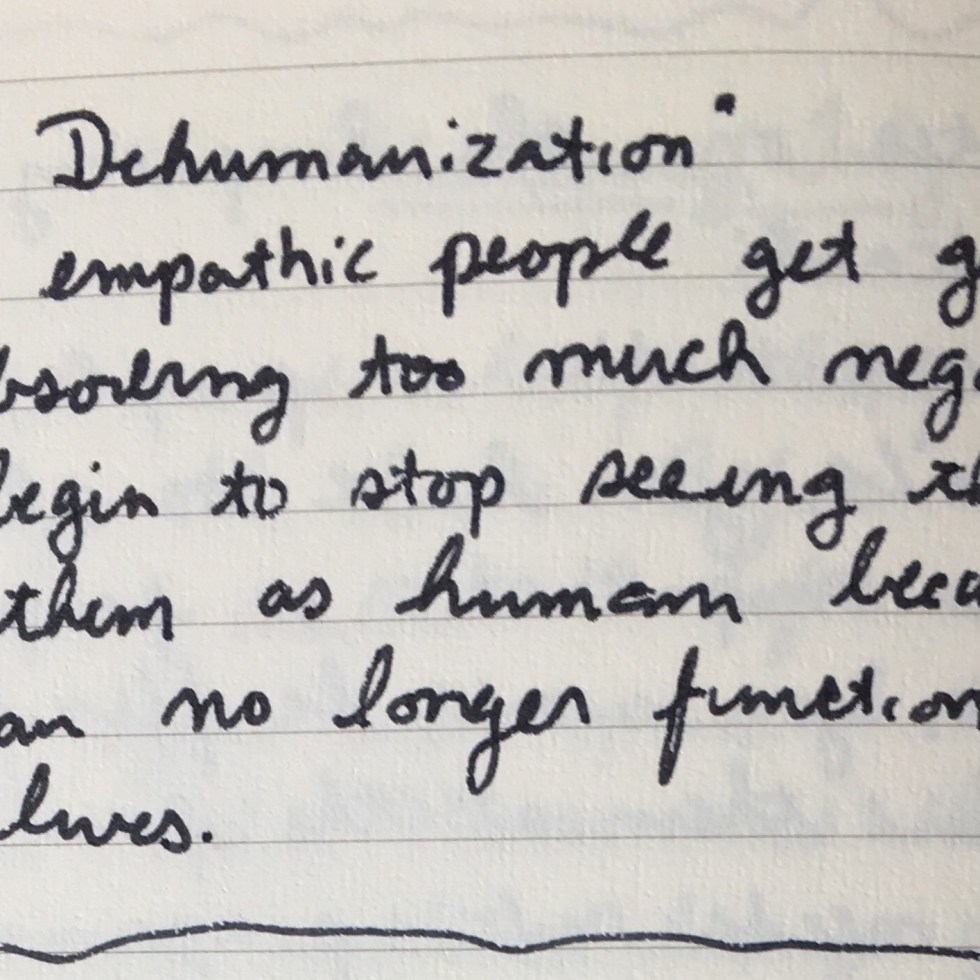 Dehumanization
empathic people get g
bsorbing too much nega
begin to stop seeing th
them as human beca
an no longer function
lives.